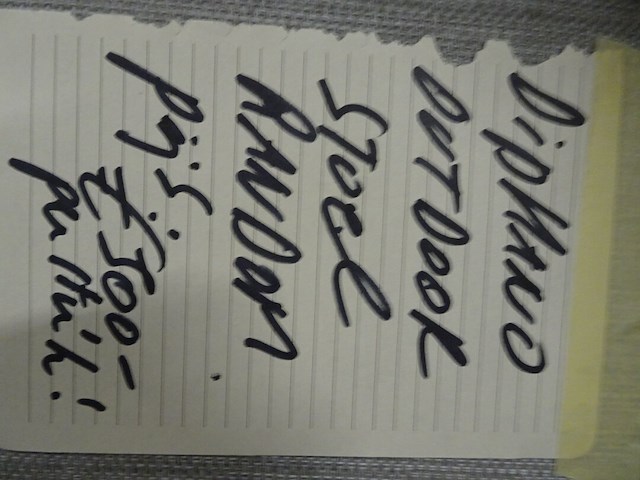 Diphano
OUTDOOR
STOEL
RANDOM
prijs:
€ 500-
per stuk!